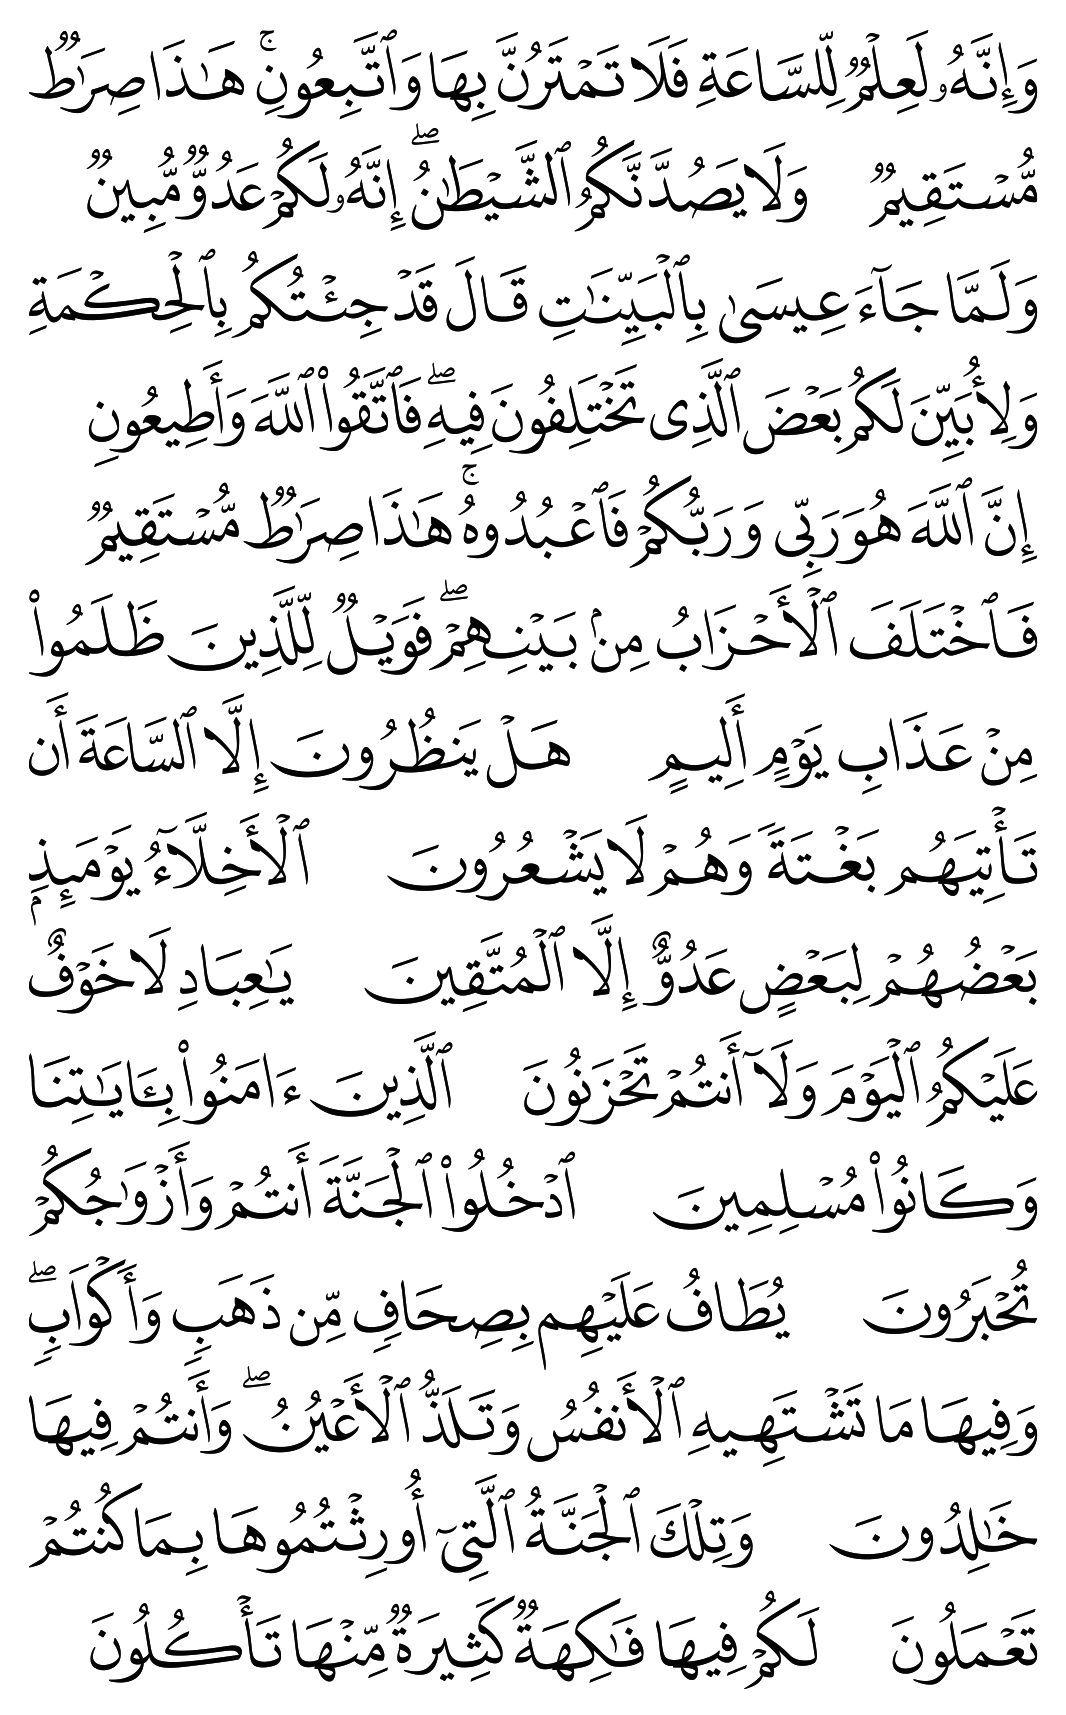 وَإِنَّهُۥ لَعِلۡمٞ لِّلسَّاعَةِ فَلَا تَمۡتَرُنَّ بِهَا وَٱتَّبِعُونِۚ هَٰذَا صِرَٰطٞ
مُّسۡتَقِيمٞ وَلَا يَصُدَّنَّكُمُ ٱلشَّيۡطَٰنُۖ إِنَّهُۥ لَكُمۡ عَدُوّٞ مُّبِينٞ
وَلَمَّا جَآءَ عِيسَىٰ بِٱلۡبَيِّنَٰتِ قَالَ قَدۡ جِئۡتُكُم بِٱلۡحِكۡمَةِ
وَلِأُبَيِّنَ لَكُم بَعۡضَ ٱلَّذِي تَخۡتَلِفُونَ فِيهِۖ فَٱتَّقُواْ ٱللَّهَ وَأَطِيعُونِ
إِنَّ ٱللَّهَ هُوَ رَبِّي وَرَبُّكُمۡ فَٱعۡبُدُوهُۚ هَٰذَا صِرَٰطٞ مُّسۡتَقِيمٞ
فَٱخۡتَلَفَ ٱلۡأَحۡزَابُ مِنۢ بَيۡنِهِمۡۖ فَوَيۡلٞ لِّلَّذِينَ ظَلَمُواْ
مِنۡ عَذَابِ يَوۡمٍ أَلِيمٍ هَلۡ يَنظُرُونَ إِلَّا ٱلسَّاعَةَ أَن
تَأۡتِيَهُم بَغۡتَةٗ وَهُمۡ لَا يَشۡعُرُونَ ٱلۡأَخِلَّآءُ يَوۡمَئِذِۭ
بَعۡضُهُمۡ لِبَعۡضٍ عَدُوٌّ إِلَّا ٱلۡمُتَّقِينَ يَٰعِبَادِ لَا خَوۡفٌ
عَلَيۡكُمُ ٱلۡيَوۡمَ وَلَآ أَنتُمۡ تَحۡزَنُونَ ٱلَّذِينَ ءَامَنُواْ بِـَٔايَٰتِنَا
وَكَانُواْ مُسۡلِمِينَ ٱدۡخُلُواْ ٱلۡجَنَّةَ أَنتُمۡ وَأَزۡوَٰجُكُمۡ
تُحۡبَرُونَ يُطَافُ عَلَيۡهِم بِصِحَافٖ مِّن ذَهَبٖ وَأَكۡوَابٖۖ
وَفِيهَا مَا تَشۡتَهِيهِ ٱلۡأَنفُسُ وَتَلَذُّ ٱلۡأَعۡيُنُۖ وَأَنتُمۡ فِيهَا
خَٰلِدُونَ وَتِلۡكَ ٱلۡجَنَّةُ ٱلَّتِيٓ أُورِثۡتُمُوهَا بِمَا كُنتُمۡ
تَعۡمَلُونَ لَكُمۡ فِيهَا فَٰكِهَةٞ كَثِيرَةٞ مِّنۡهَا تَأۡكُلُونَ